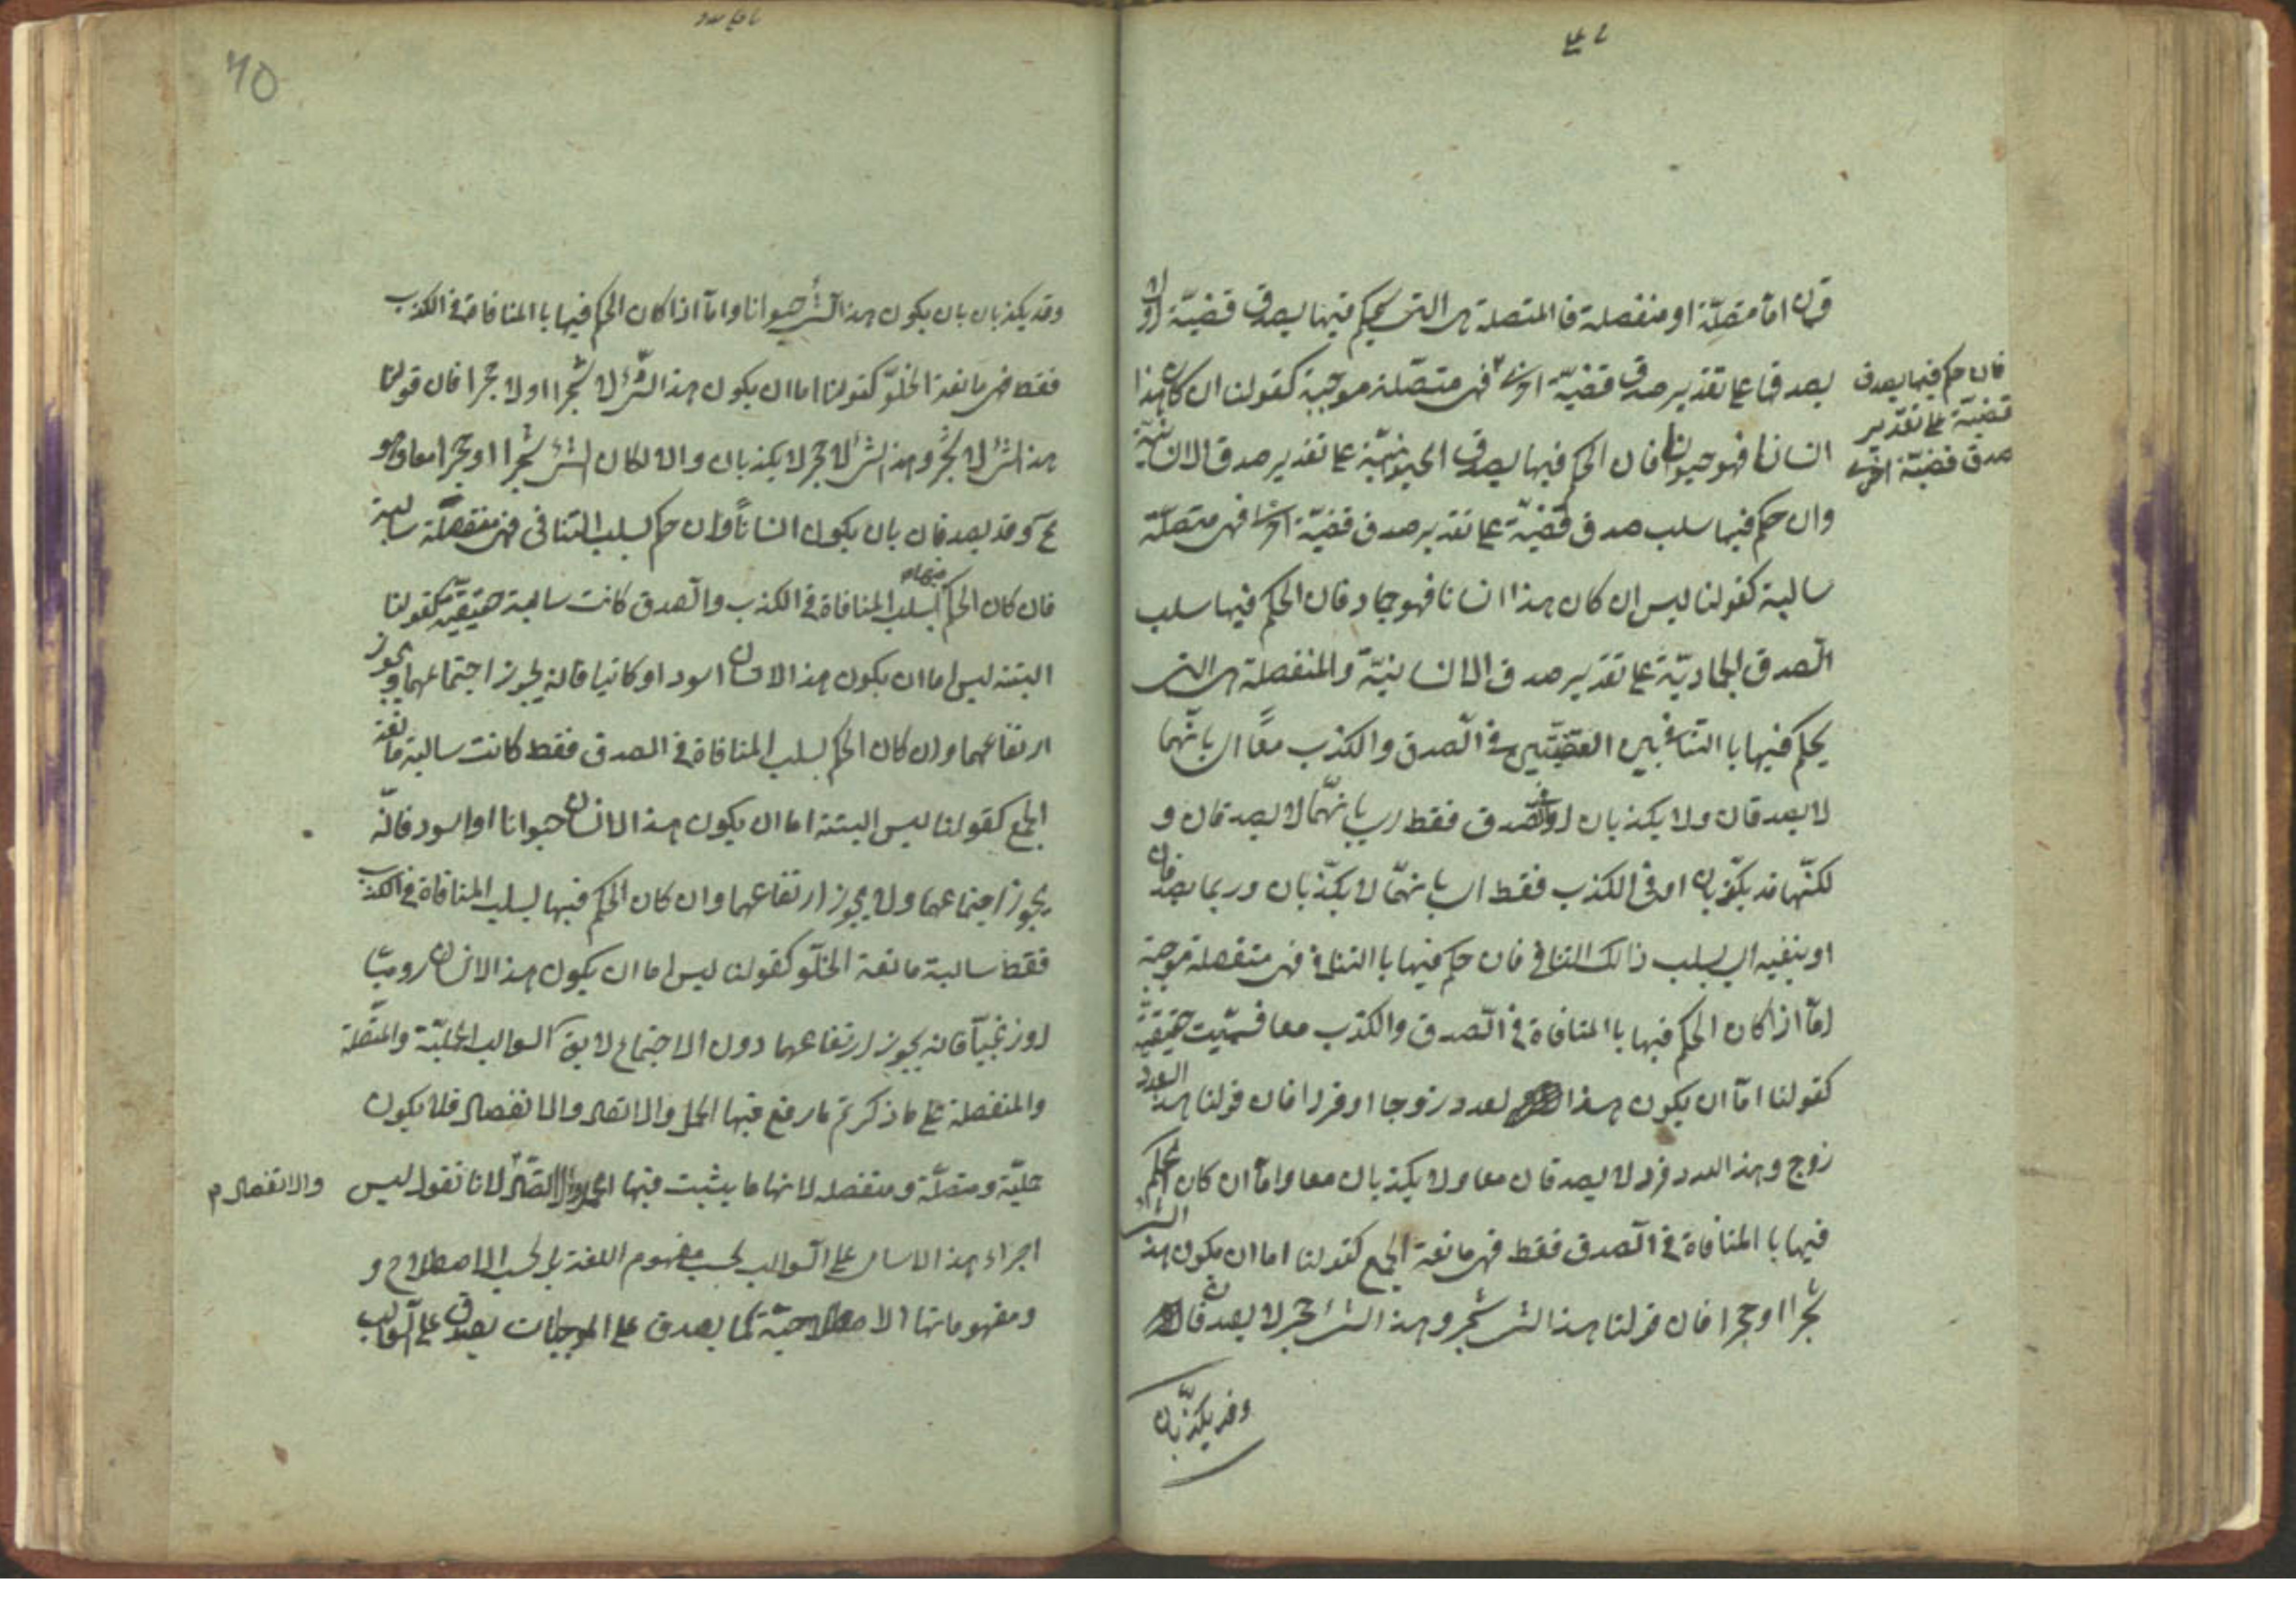 قسمان امّا متصلّة او منفصلة فا المتصلة هى التى يحكم فيها بصدق قضيّة او لا
بصدقها على تقدير صدق قضيّة اخرى فهى متصّلة موجبة كقولنا ان كان هذا
فان حكم فيها بصدق
قضية على تقدير
صدق قضيّة اخرى
انسانا فهو حيوان فان الحكم فيها بصدق الحيوانيّة على تقدير صدق الانسانيّة
وان حكم فيها سلب صدق قضيّة على تقدير صدق قضيّة اخرى فهى متصلّة
سالبة كقولنا ليس ان كان هذا انسانا فهو جماد فان الحكم فيها سلب
الصّدق الجماديّة على تقدير صدق الانسانيّة والمنفصلة هى التى
يحكم فيها با التنافى بين القضيّتين فى الصّدق والكذب معًا اى بانّهما
لا يصدقان ولا يكذبان او فى الصّدق فقط اى بانهّما لا يصدقان و
لكنّهما قد يكذّبان او فى الكذب فقط اى بانهّما لا يكذّبان وربما يصدقان
او بنفيه اى بسلب ذالك التنافى فان حكم فيها با التنافى فهى منفصلة موجبة
امّا اذا كان الحكم فيها با المنافاة فى الصّدق والكذب معا سمّيت حقيقيّة
كقولنا امّا ان يكون هذا لعدد زوجا او فردا فان قولنا هذا العدد
زوج وهذا العدد فرد لا يصدقان معا ولا يكذبان معا وامّا ان كان الحكم
فيها با المنافاة فى الصّدق فقط فهى مانعة الجمع كقولنا اما ان يكون هذا الشئ
شجرا او حجرا فان قولنا هذا الشئ شجر وهذا الشئ حجر لا يصدقان
وقد يكذّبان
٦٥
وقد يكذبان بان يكون هذا الشئ حيوانا وامّا اذا كان الحكم فيها با المنافاة فى الكذب
فقط فهى مانعة الخلوّ كقولنا اما ان يكون هذا الشئ لا شجرا او لا حجرا فان قولنا
هذا الشئ لا شجر وهذا الشئ لا حجر لا يكذبان والا لكان الشئ شجرا او حجرا معا وهو
مح وقد يصدقان بان يكون انسانًا وان حكم بسلب التنافى فهى منفصلّة سالبة
فان كان الحكم فيها بسلب المنافاة فى الكذب والصّدق كانت سالبة حقيقيّة كقولنا
البتة ليس اما ان يكون هذا الانسان اسود او كاتبا فانه يجوز اجتماعهما ويجوز
ارتفاعهما وان كان الحكم بسلب المنافاة فى الصدق فقط كانت سالبة مانعة
الجمع كقولنا ليس البتة اما ان يكون هذا الانسان حيوانا او اسود فانّه
يجوز اجتماعهما ولا يجوز ارتفاعهما وان كان الحكم فيها بسلب المنافاة فى الكذب
فقط سالبة مانعة الخلّو كقولنا ليس اما ان يكون هذا الانسان روميّا
او زنجيّا فانه يجوز ارتفاعهما دون الاجتماع لا يق السوالب الحمليّة والمتّصلة
والمنفصلة على ما ذكرتم ما رفع فيها الحمل والاتصال والانفصال فلا يكون
حمليّة ومتصلّة ومنفصله لانها ما يثبت فيها الحمل والاتّصال لانا نقول ليس
والانفصال م
اجراء هذا الاسامى على السّوالب بحسب مفهوم اللغة بل بحسب الاصطلاح و
ومفهوماتها الاصطلاحيّة كما يصدق على الموجبات يصدق على السّوالب